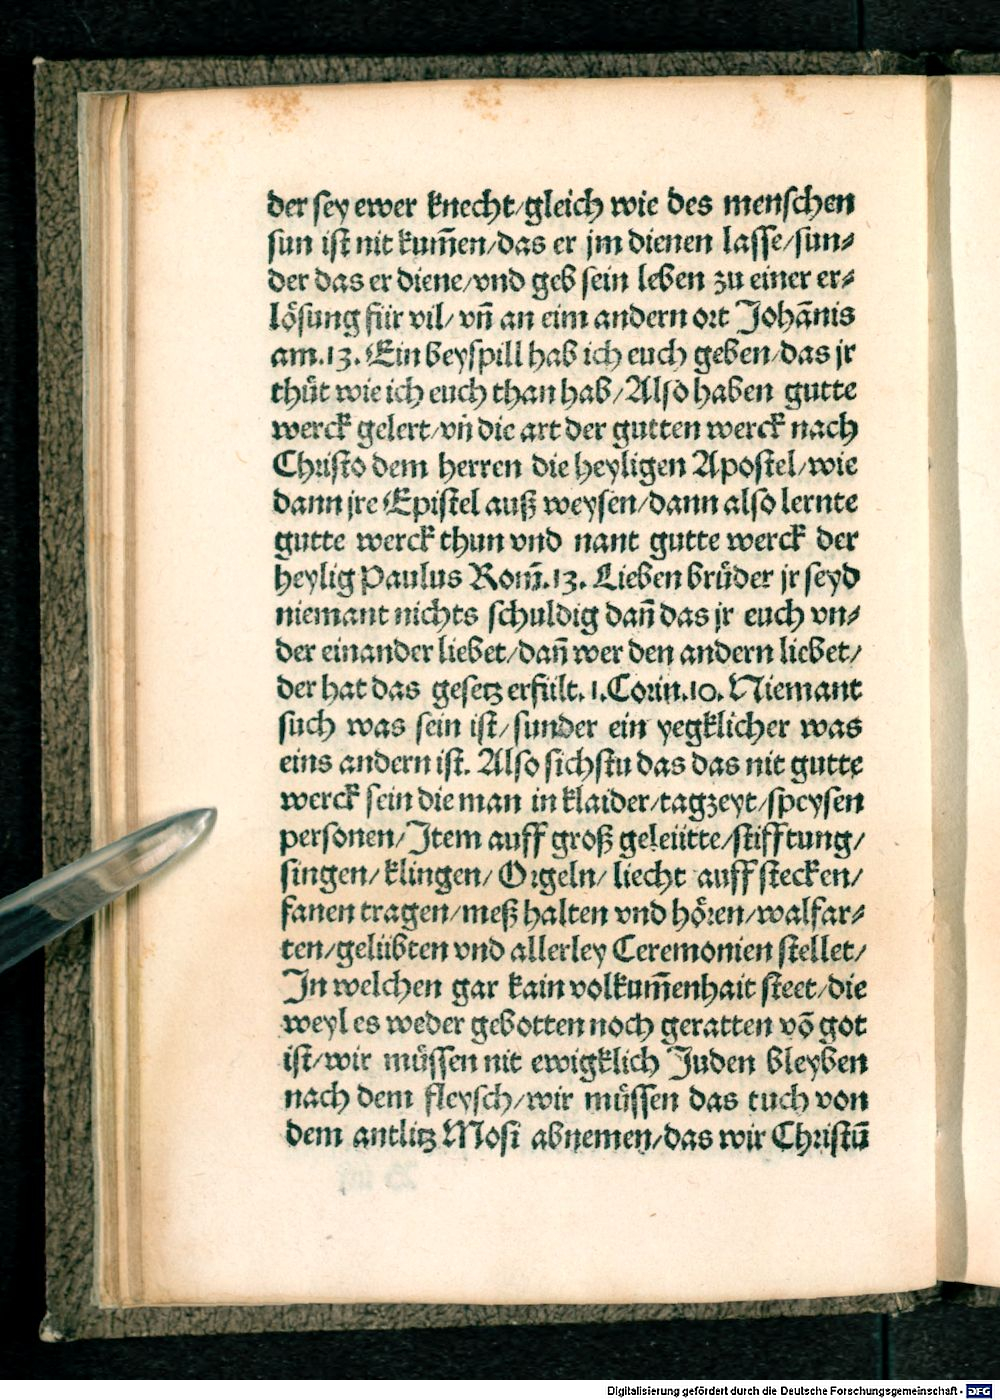 der sey ewer knecht/gleich wie des menschen
sun ist nit kum̄en/das er jm dienen lasse/sun⸗
der das er diene/vnd geb sein leben zu einer er⸗
lösung für vil/vn̄ an eim andern ort Johānis
am.13. Ein beyspill hab ich euch geben/das jr
thůt wie ich euch than hab/Also haben gutte
werck gelert/vn̄ die art der gutten werck nach
Christo dem herren die heyligen Apostel/wie
dann jre Epistel auß weysen/dann also lernte
gutte werck thun vnd nant gutte werck der
heylig Paulus Rom̄.13. Lieben brůder jr seyd
niemant nichts schuldig dan̄ das jr euch vn⸗
der einander liebet/dan̄ wer den andern liebet/
der hat das gesetz erfült.1.Corin.10. Niemant
such was sein ist/sunder ein yegklicher was
eins andern ist. Also sichstu das das nit gutte
werck sein die man in klaider/tagzeyt/speysen
personen/Item auff groß geleütte/stifftung/
singen/klingen/Orgeln/liecht auff stecken/
fanen tragen/meß halten vnd hören/walfar⸗
ten/gelübten vnd allerley Ceremonien stellet/
In welchen gar kain volkum̄enhait steet/die
weyl es weder gebotten noch geratten vō got
ist/wir müssen nit ewigklich Juden bleyben
nach dem fleysch/wir müssen das tuch von
dem antlitz Mosi abnemen/das wir Christū
Digitalisierung gefördert durch die Deutsche Forschungsgemeinschaft - DFG